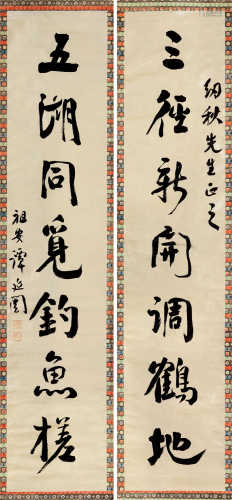 三徑新開調鶴地
紉秋先生正之
五湖同覓釣魚槎
祖安譚延闓